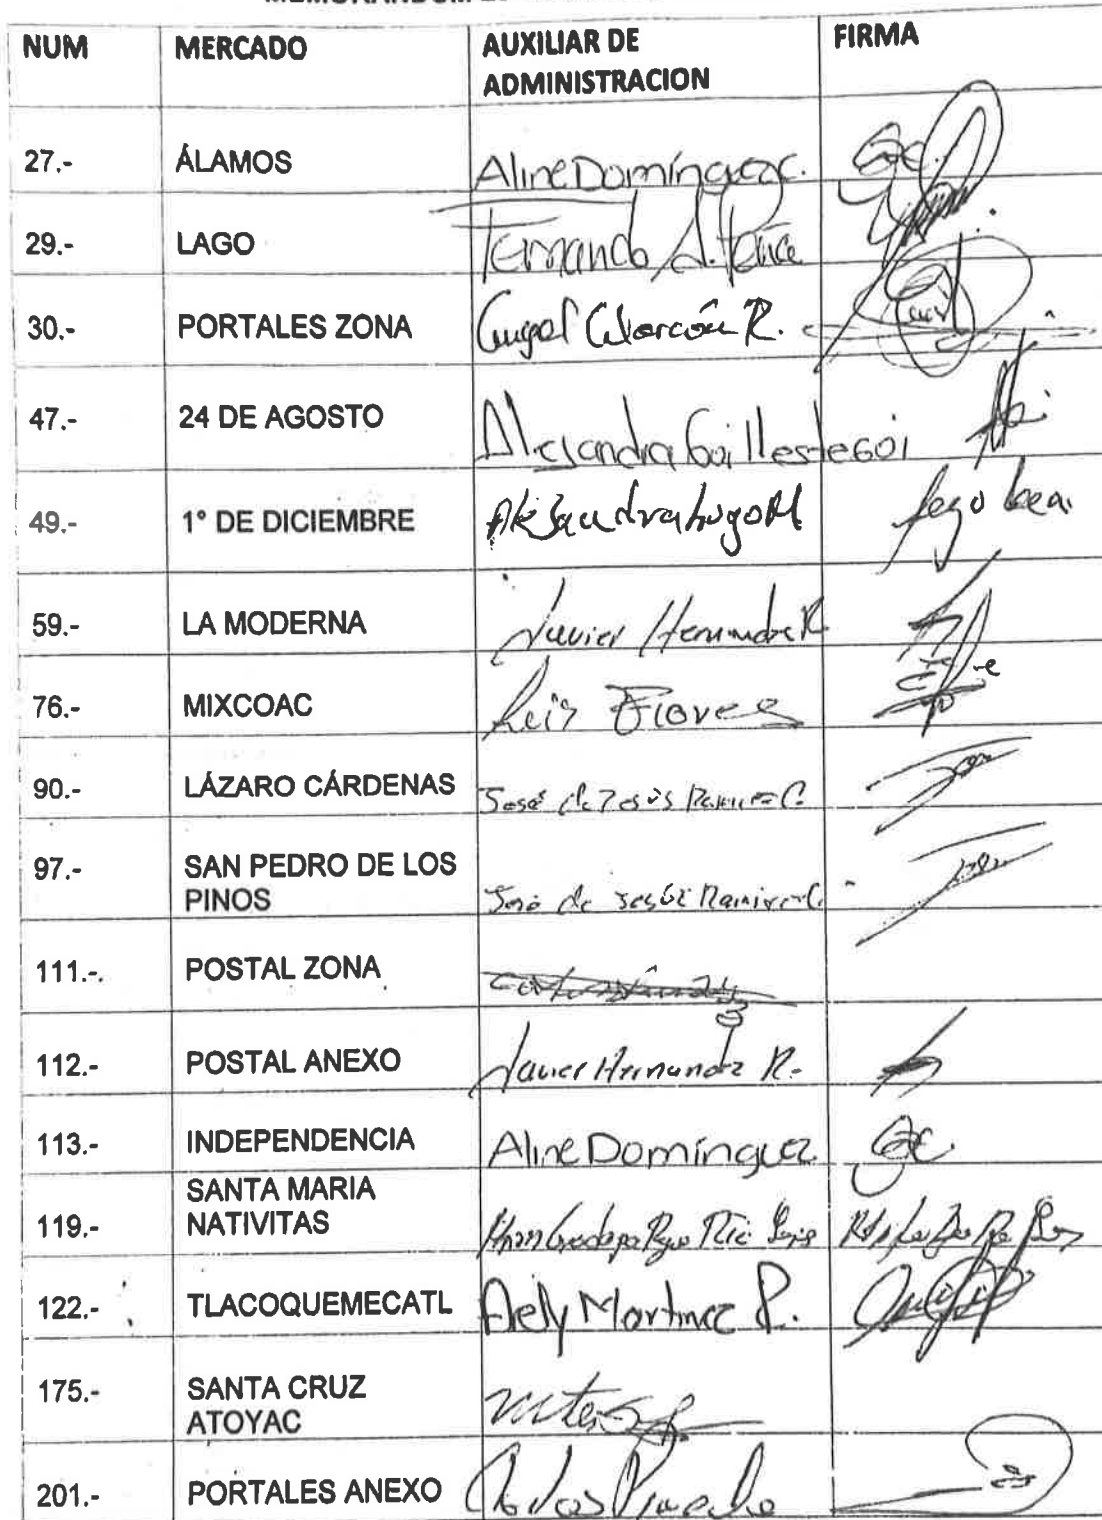 NUM MERCADO AUXILIAR DE ADMINISTRACION FIRMA
27.- ÁLAMOS Aline Domínguez C.
29.- LAGO Fernando A.
30.- PORTALES ZONA Angel Alarcón R.
47.- 24 DE AGOSTO Alejandra Goillestegoi
49.- 1° DE DICIEMBRE Alejandra Lugo M
59.- LA MODERNA Javier Hernandez R
76.- MIXCOAC Luis Flores
90.- LÁZARO CÁRDENAS José de Jesús Ramirez C.
97.- SAN PEDRO DE LOS PINOS José de Jesús Ramirez C.
111.-. POSTAL ZONA
112.- POSTAL ANEXO Javier Hernandez R.
113.- INDEPENDENCIA Aline Domínguez
119.- SANTA MARIA NATIVITAS
122.- TLACOQUEMECATL Aely Martinez P.
175.- SANTA CRUZ ATOYAC
201.- PORTALES ANEXO Carlos